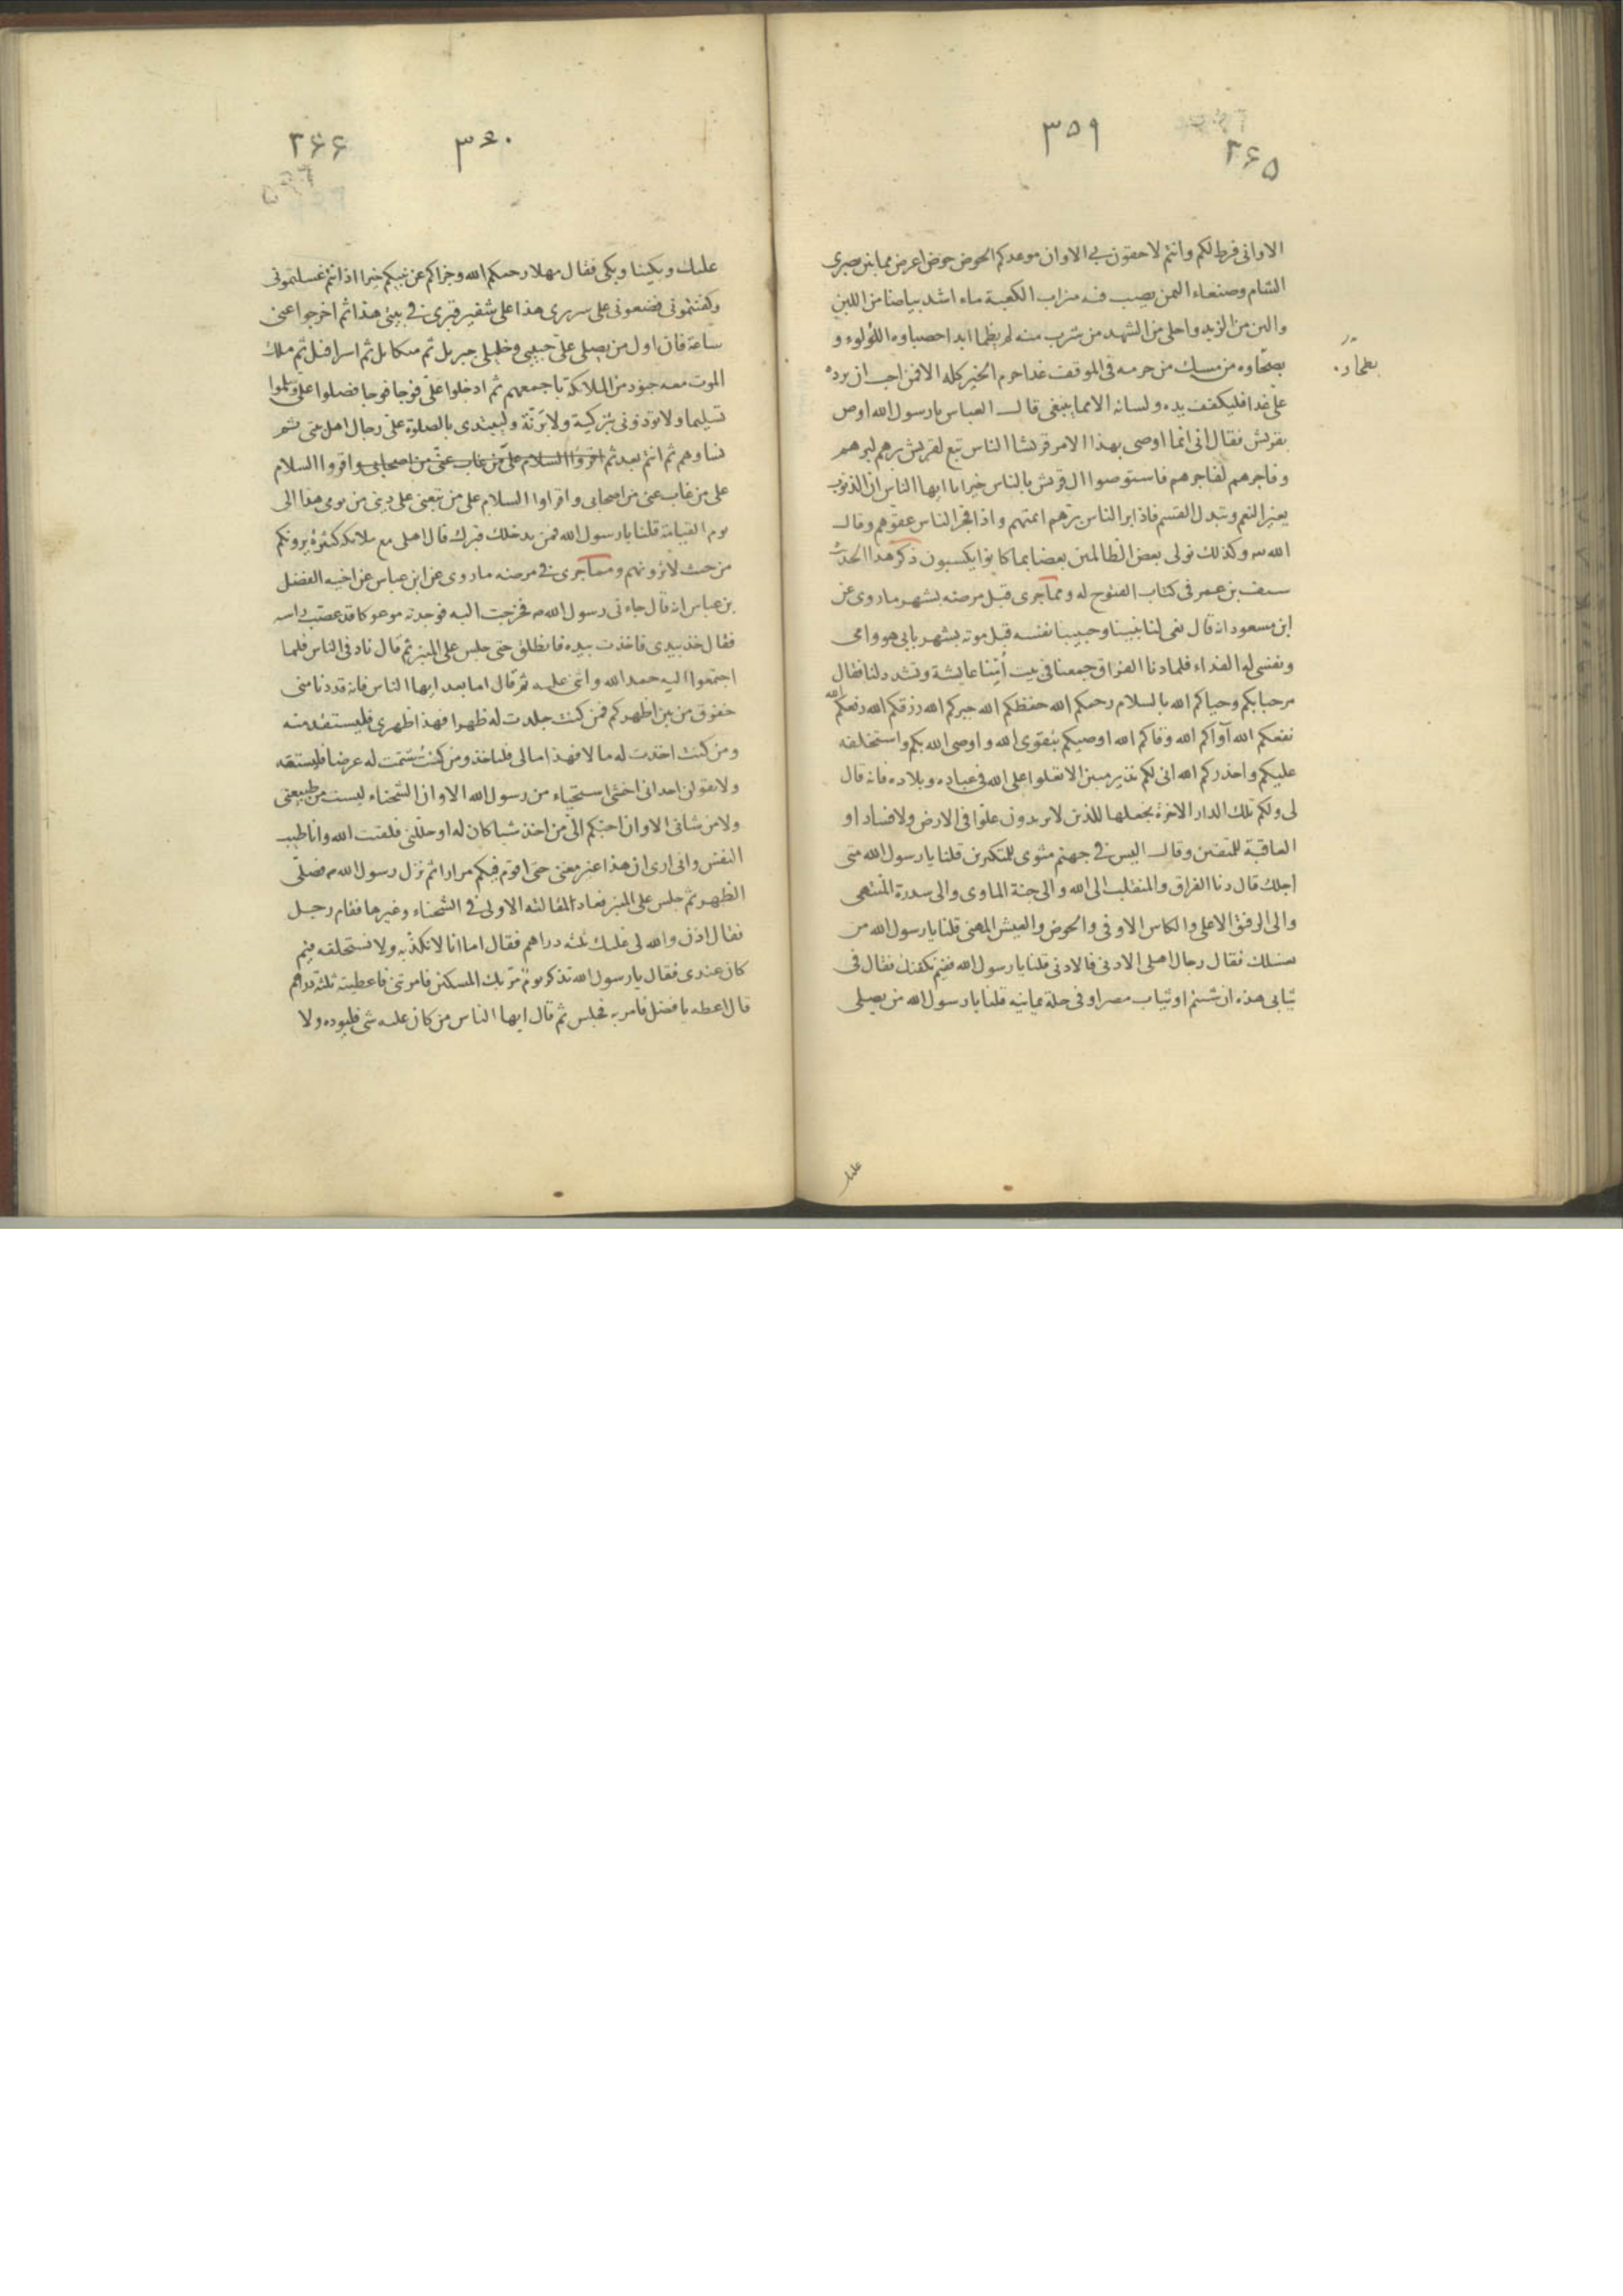 ٣٥٩
٢۶۵
الا وانى فرط لكم وانتم لاحقون بي الا وان موعدكم الحوض حوض اعرض مما بين بصرى
الشام وصنعاء اليمن يصب فيه ميزاب الكعبة ماء اشد بياضا من اللبن
والين من الزبد واحلى من الشهد من شرب منه لم يظما ابدا حصباوه اللؤلوء و
بطحاوه من مسك من حرمه فى الموقف غدا حرم الخير كله الا فمن احب ان يرده
على غدا فليكفف يده ولسانه الا مما ينبغى قال العباس يا رسول الله اوص
بقريش فقال انى انما اوصى بهذا الامر قريشا الناس تبع لقريش برهم لبرهم
وفاجرهم لفاجرهم فاستوصوا ال قريش بالناس خيرا يا ايها الناس ان الذنوب
يغير النعم وتبدل القسم فاذا بر الناس برهم ائمتهم واذا فجر الناس عقوهم وقال
الله وكذلك نولى بعض الظالمين بعضا بما كانوا يكسبون ذكر هذا الحديث
سيف بن عمر فى كتاب الفتوح له ومما جرى قبل مرضه بشهر ما روى عن
ابن مسعود انه قال نعى لنا نبينا وحبيبنا نفسه قبل موته بشهر بابى هو وامى
ونفسى له الفداء فلما دنا الفراق جمعنا فى بيت اُمّنا عايشة وتشدد لنا فقال
مرحبا بكم وحياكم الله بالسلام رحمكم الله حفظكم الله جبركم الله رزقكم الله رفعكم الله
نفعكم الله آواكم الله وقاكم الله اوصيكم بتقوى الله واوصى الله بكم واستخلفه
عليكم واحذركم الله انى لكم نذير مبين الا تعلوا على الله فى عباده وبلاده فانه قال
لى ولكم تلك الدار الاخرة نجعلها للذين لا يريدون علوّا فى الارض ولا فسادا و
العاقبة للمتقين وقال اليس في جهنم مثوى للمتكبرين قلنا يا رسول الله متى
اجلك قال دنا الفراق والمنقلب الى الله والى جنة الماوى والى سدرة المنتهى
والى الرفيق الاعلى والكاس الاوفى والحوض والعيش المهنى قلنا يا رسول الله من
يغسلك فقال رجال اهلى الادنى فالادنى قلنا يا رسول الله ففيم نكفنك فقال فى
ثيابى هذه ان شئتم او ثياب مصر او فى حلة يمانية قلنا يا رسول الله من يصلى
عليك
٣٦٠
٢۶۶
عليك وبكينا وبكى فقال مهلا رحمكم الله وجزاكم عن نبيكم خيرا اذا انتم غسلتمونى
وكفنتمونى فضعونى على سريرى هذا على شفير قبرى في بيتى هذا ثم اخرجوا عنى
ساعة فان اول من يصلى على حبيبى وخليلى جبريل ثم ميكايل ثم اسرافيل ثم ملك
الموت معه جنود من الملائكة باجمعهم ثم ادخلوا علىّ فوجا فوجا فصلوا علىّ وسلموا
تسليما ولا تؤذونى بتزكية ولا برنّة وليبتدى بالصلوة علىّ رجال اهل بيتى ثم
نساوهم ثم انتم بعد ثم اقروا السلام على من غاب عنى من اصحابى واقروا السلام
على من غاب عنى من اصحابى واقراوا السلام على من تبعنى على دينى من يومى هذا الى
يوم القيامة قلنا يا رسول الله فمن يدخلك قبرك قال اهلى مع ملائكة كثيرة يرونكم
من حيث لا ترونهم ومما جرى في مرضه ما روى عن ابن عباس عن اخيه الفضل
بن عباس انه قال جاءنى رسول الله فخرجت اليه فوجدته موعوكا قد عصب راسه
فقال خذ بيدى فاخذت بيده فانطلق حتى جلس على المنبر ثم قال ناد فى الناس فلما
اجتمعوا اليه حمد الله واثنى عليه ثم قال اما بعد ايها الناس فانه قد دنا منى
حقوق من بين اظهركم فمن كنت جلدت له ظهرا فهذا ظهرى فليستقد منه
ومن كنت اخذت له مالا فهذا مالى فلياخذ ومن كنت شتمت له عرضا فليستقد
ولا يقولن احد انى اخشى استحياء من رسول الله الا وان الشحناء ليست من طبيعتى
ولا من شانى الا وان احبّكم الىّ من اخذ شيا كان له او حللنى فلقيت الله وانا طيب
النفس وانى ارى ان هذا غير مغنى حتى اقوم فيكم مرارا ثم نزل رسول الله فصلّى
الظهر ثم جلس على المنبر فعاد لمقالته الاولى في الشحناء وغيرها فقام رجل
فقال اذن والله لى عليك ثلثه دراهم فقال اما انا لا نكذّبه ولا نستحلفه فيم
كان عندى فقال يا رسول الله تذكر يوم مرّ بك المسكين فامرتنى فاعطيته ثلثة دراهم
قال اعطه يا فضل فامر به فجلس ثم قال ايها الناس من كان عليه شى فليوده ولا